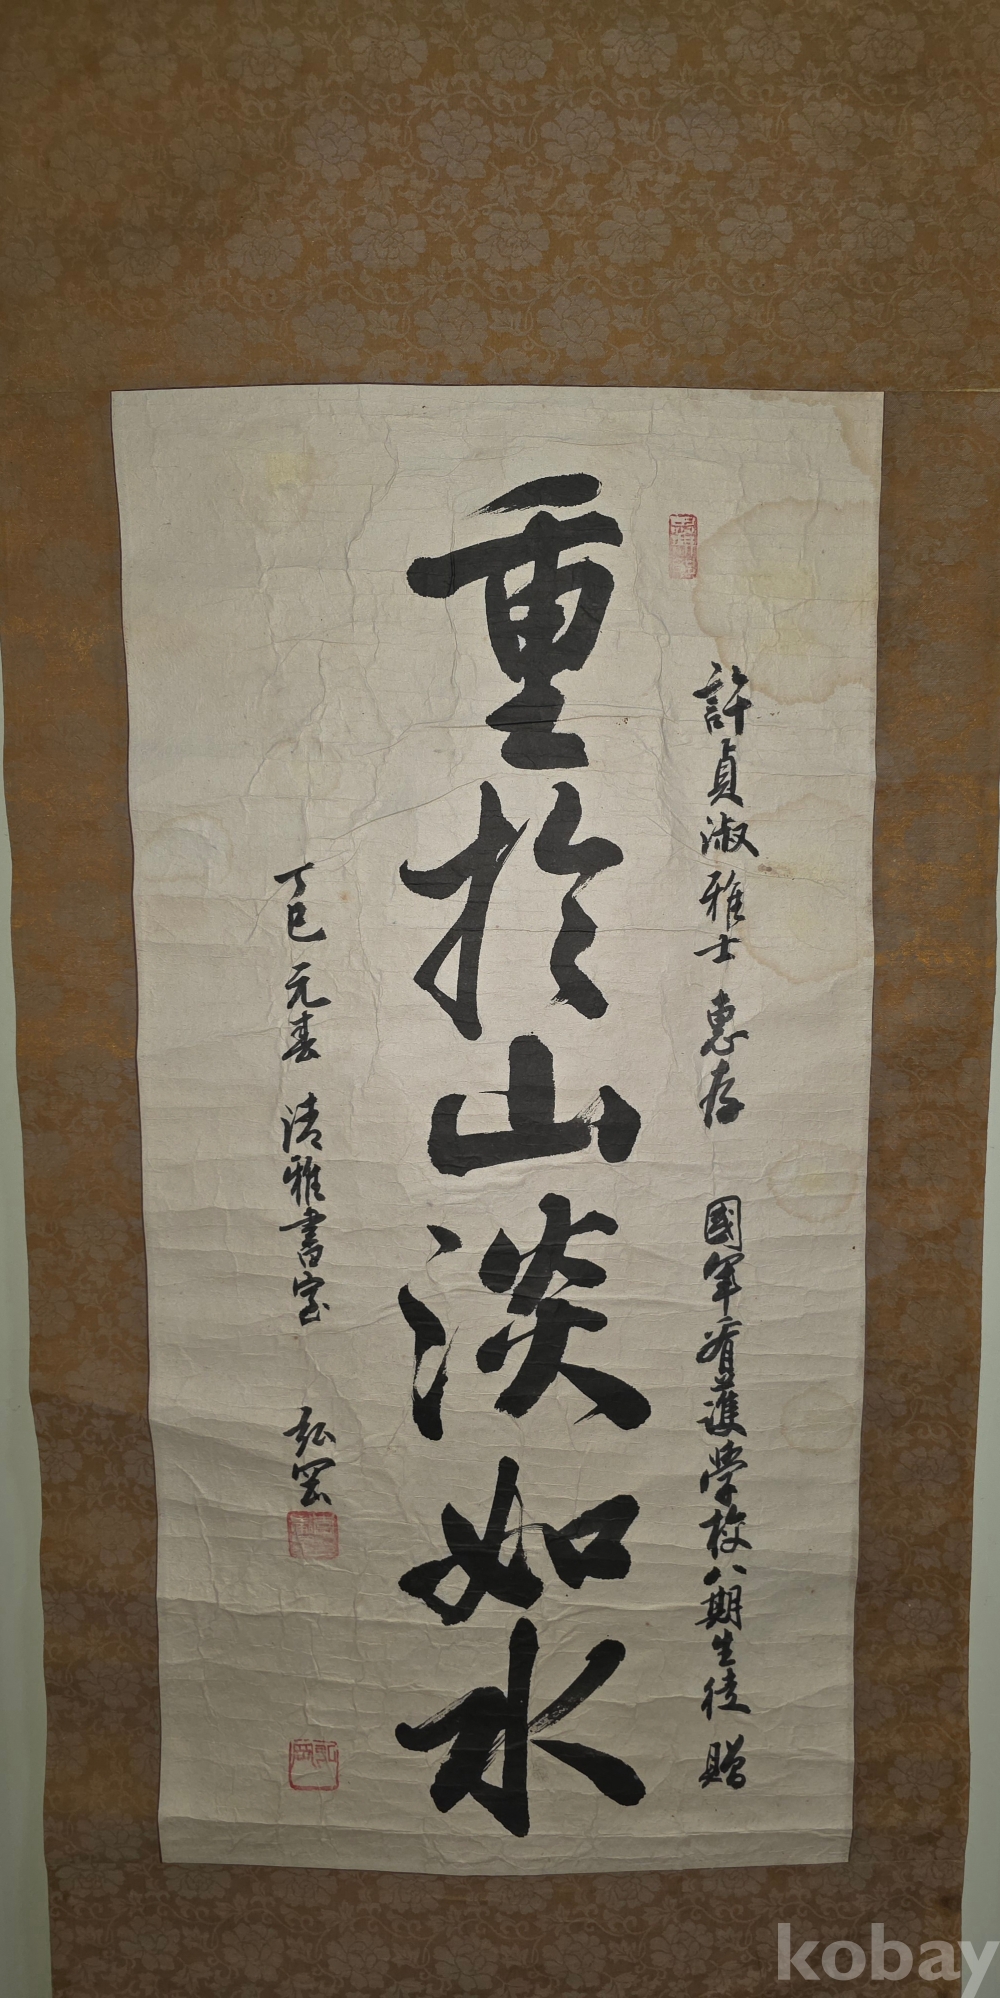 許貞淑雅士 惠存 國軍看護學校八期生徒 贈
重於山淡如水
丁巳 元春 清雅書室 弘罡
kobay